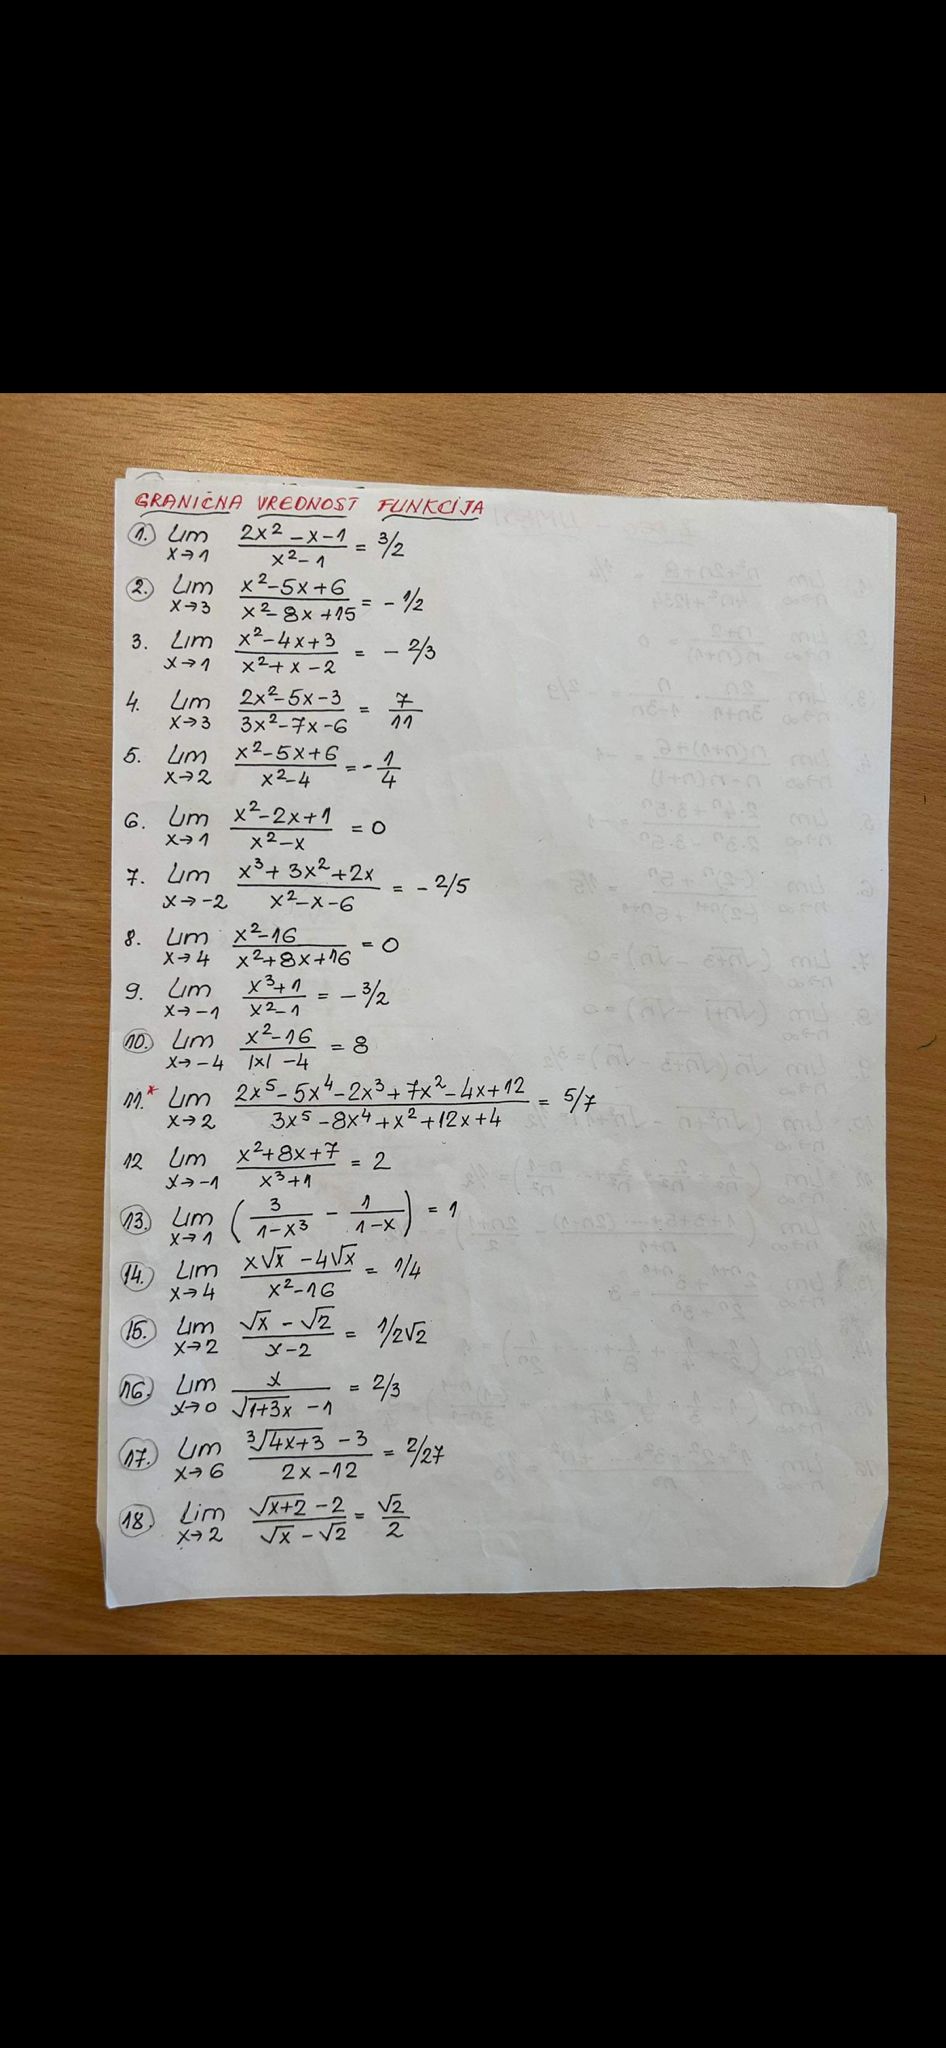 GRANIČNA VREDNOST FUNKCIJA
1. lim x→1 (2x² - x - 1)/(x² - 1) = 3/2
2. lim x→3 (x² - 5x + 6)/(x² - 8x + 15) = - 1/2
3. lim x→1 (x² - 4x + 3)/(x² + x - 2) = - 2/3
4. lim x→3 (2x² - 5x - 3)/(3x² - 7x - 6) = 7/11
5. lim x→2 (x² - 5x + 6)/(x² - 4) = - 1/4
6. lim x→1 (x² - 2x + 1)/(x² - x) = 0
7. lim x→-2 (x³ + 3x² + 2x)/(x² - x - 6) = - 2/5
8. lim x→4 (x² - 16)/(x² + 8x + 16) = 0
9. lim x→-1 (x³ + 1)/(x² - 1) = - 3/2
10. lim x→-4 (x² - 16)/(|x| - 4) = 8
11.* lim x→2 (2x⁵ - 5x⁴ - 2x³ + 7x² - 4x + 12)/(3x⁵ - 8x⁴ + x² + 12x + 4) = 5/7
12 lim x→-1 (x² + 8x + 7)/(x³ + 1) = 2
13. lim x→1 (3/(1 - x³) - 1/(1 - x)) = 1
14. lim x→4 (x√x - 4√x)/(x² - 16) = 1/4
15. lim x→2 (√x - √2)/(x - 2) = 1/2√2
16. lim x→0 x/(√(1+3x) - 1) = 2/3
17. lim x→6 (³√(4x+3) - 3)/(2x - 12) = 2/27
18. lim x→2 (√(x+2) - 2)/(√x - √2) = √2/2